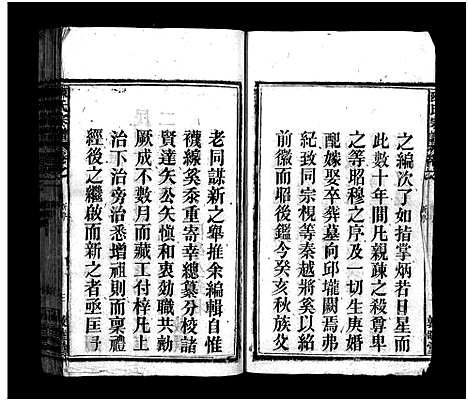 之編次了如指掌炳若日星而
此數十年間凡親疎之殺尊卑
之等昭穆之序及一切生庚婚
配嫁娶卒葬墓向邱壠闕焉弗
紀致同宗視等秦越將奚以紹
前徽而昭後鑑今癸亥秋族父
老同諆新之舉推余編輯自惟
襪線奚黍重寄幸總纂分校諸
賢達矢公矢愼和衷効職共勷
厥成不數月而藏工付梓凡上
治下治旁治悉增祖則而稟禮
經後之繼啟而新之者亟匡予